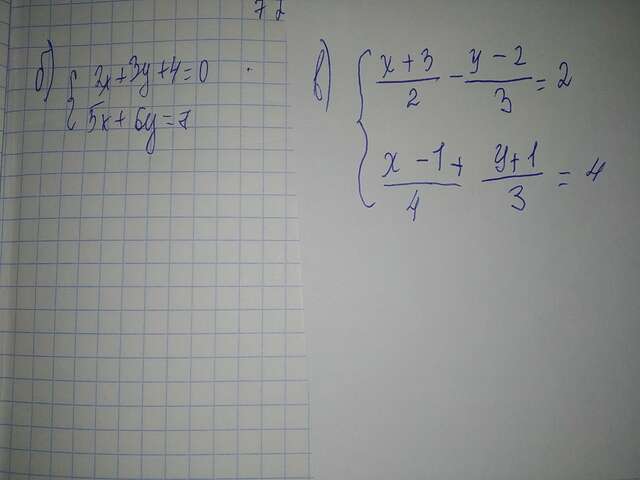 77
б) { 2x+3y+4=0
5x+6y=7
в) { (x+3)/2 - (y-2)/3 = 2
(x-1)/4 + (y+1)/3 = 4